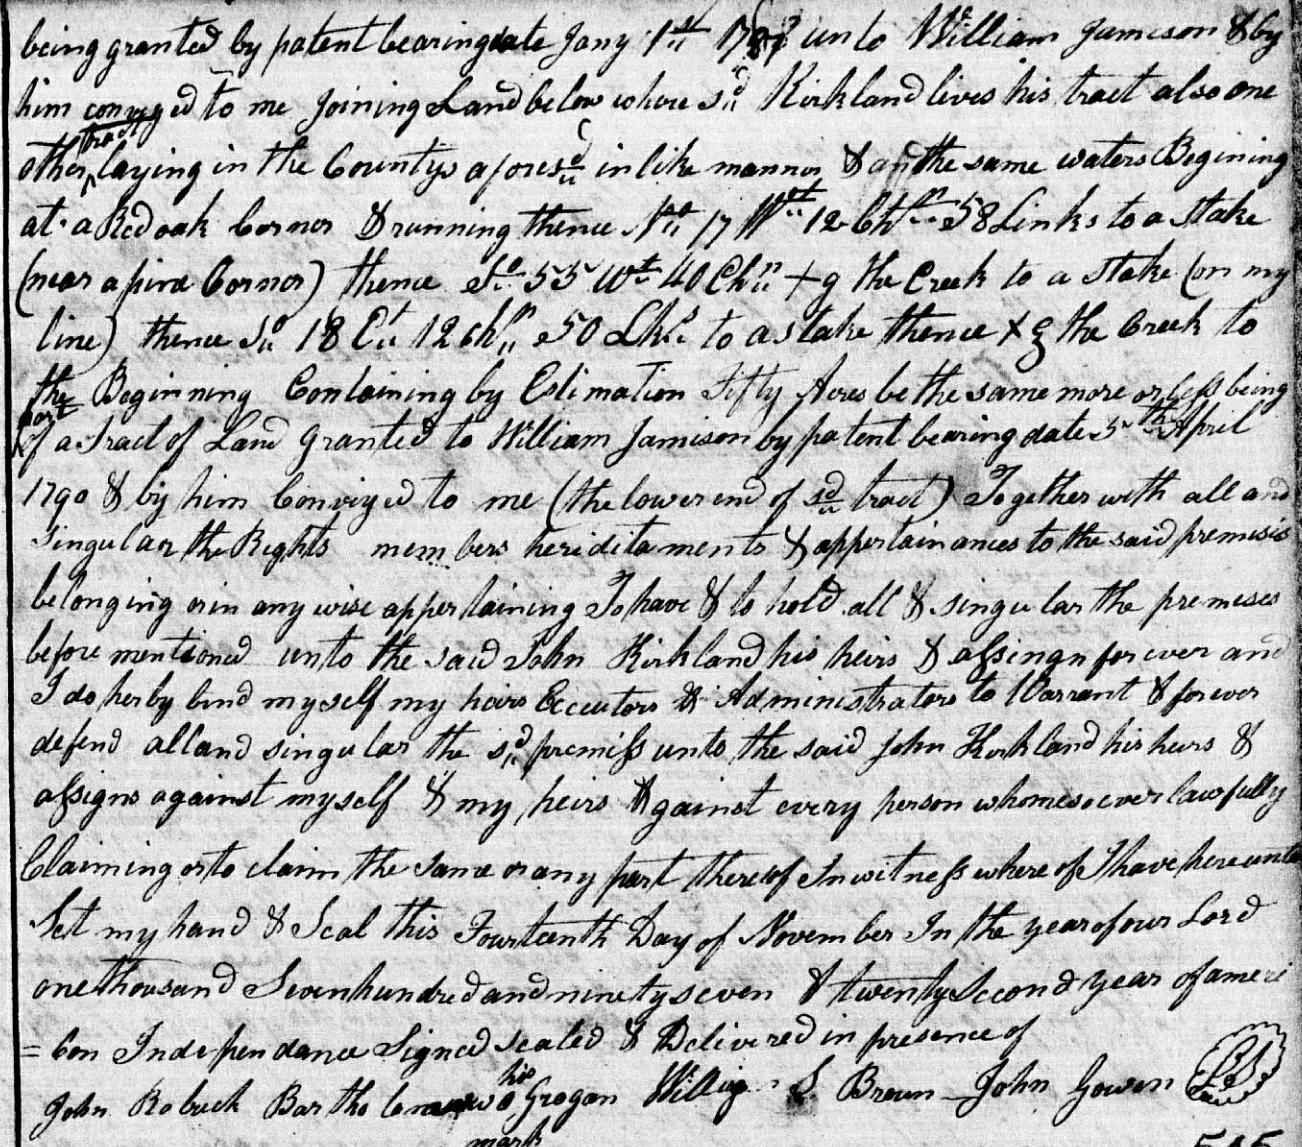 being granted by patent bearing date Jany 1st unto William Jameson & by
him convyged to me Joining Land below where sd Kirkland lives his tract also one
other tract laying in the Countys aforesd in like mannor & on the same waters Begining
at a Red oak Cornor & running thence No 17 Wt 12 Chn 58 Links to a Stake
(near a pine Cornor) thence So 55 Wt 40 Chn +g the Creek to a stake (on my
line) thence So 18 Et 12 Chn 50 Lks to a stake thence Xg the Creek to
the Beginning Containing by Estimation Fifty Acres be the same more or less being
part of a Tract of Land Granted to William Jamison by patent bearing date 5th April
1790 & by him Conviyed to me (the lower end of sd tract) Together with all and
Singular the Rights members heriditaments & appertainances to the said premisis
belonging or in any wise appertaining To have & to hold all & singular the premises
before mentioned unto the said John Kirkland his heirs & assingn forever and
I do herby bind myself my heirs Executors & Administrators to Warrant & forever
defend all and singular the sd premiss unto the said John Kirkland his heirs &
assigns against myself & my heirs & against every person whomesoever lawfully
Claiming or to claim the same or any part thereof In witness where of I have here unto
Set my hand & Seal this Fourteenth Day of November In the year of our Lord
one thousand Seven hundred and ninety seven & twenty Second year of ameri
= Can Independance Signed sealed & Delivered in presence of
John Robuck Bartho his o Grogan S. Breun John Gowen LS
mark